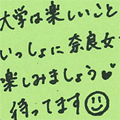 大学は楽しいこと
いっしょに奈良女
楽しみましょう♥
待ってます☺